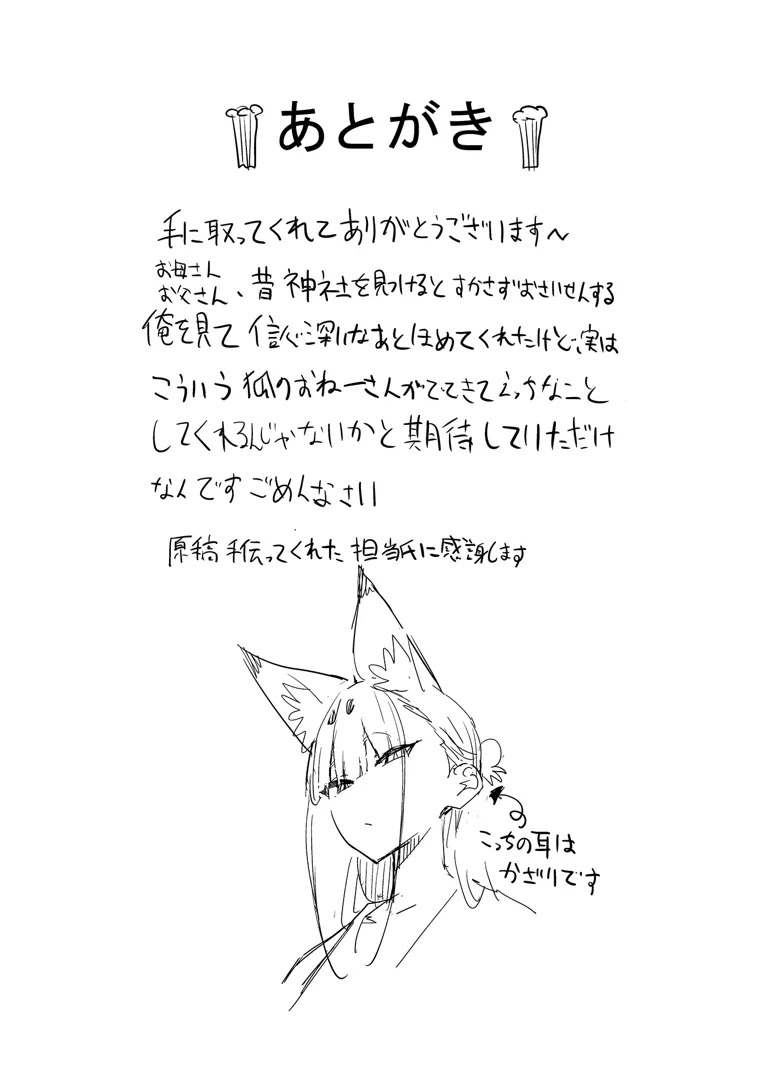 あとがき
手に取ってくれてありがとうございます〜
お母さん
お父さん、昔神社を見つけるとすかさずおさいせんする
俺を見て信心深いなあとほめてくれたけど、実は
こういう狐のおねーさんがでてきてえっちなこと
してくれるんじゃないかと期待していただけ
なんです ごめんなさい
原稿手伝ってくれた担当氏に感謝します
こっちの耳は
かざりです